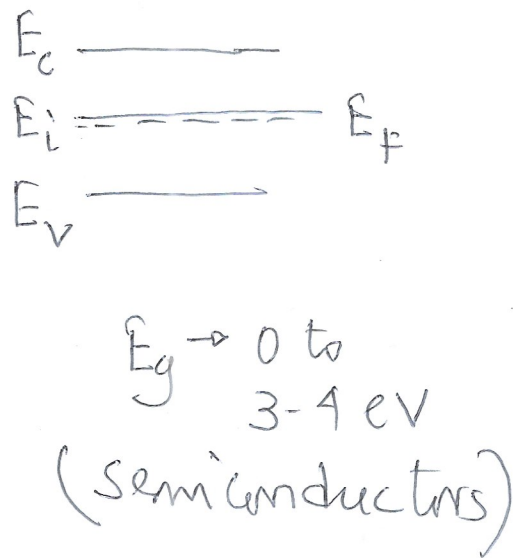 E_c
E_i E_F
E_v
E_g → 0 to
3-4 eV
(semiconductors)